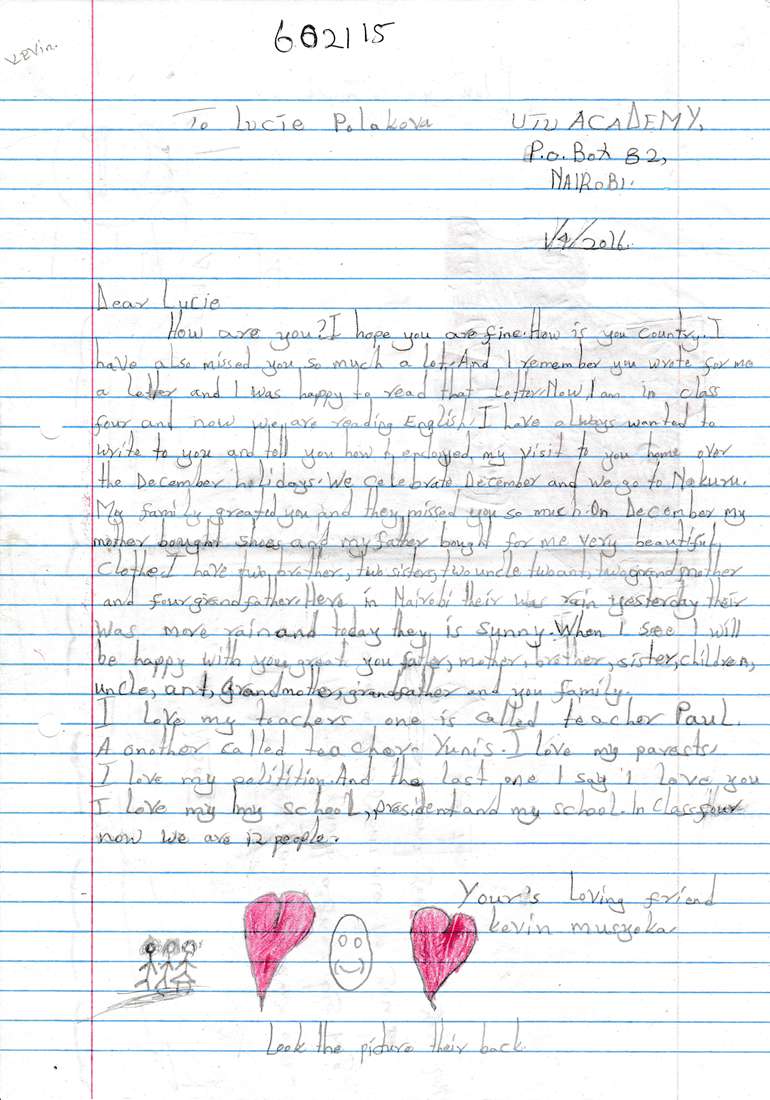 602115
Kevin.
To Lucie Polakova
UTU ACADEMY,
P.o. Box 82,
NAIROBI.
1/4/2016.
Dear Lucie
How are you? I hope you are fine. How is you country. I
have also missed you so much a lot. And I remember you wrote for me
a letter and I was happy to read that letter. Now I am in class
four and now we are reading English. I have always wanted to
write to you and tell you how I enjoyed my visit to you home over
the December holidays. We celebrate December and we go to Nakuru.
My family greated you and they missed you so much. On December my
mother bought shoes and my father bought for me very beautiful
clothe. I have two brother, two sisters, two uncle two ant, two grand mother
and four grandfather. Here in Nairobi their was rain yesterday their
was more rain and today they is sunny. When I see I will
be happy with you great you father, mother, brother, sister, children,
uncle, ant, grandmother, grandfather and you family.
I love my teachers one is called teacher Paul.
A onother called teacher Yunis. I love my parests,
I love my politition. And the last one I say I love you
I love my my school, president and my school. In class four
now we are 12 people.
Your's loving friend
kevin musyoka
Look the picture their back